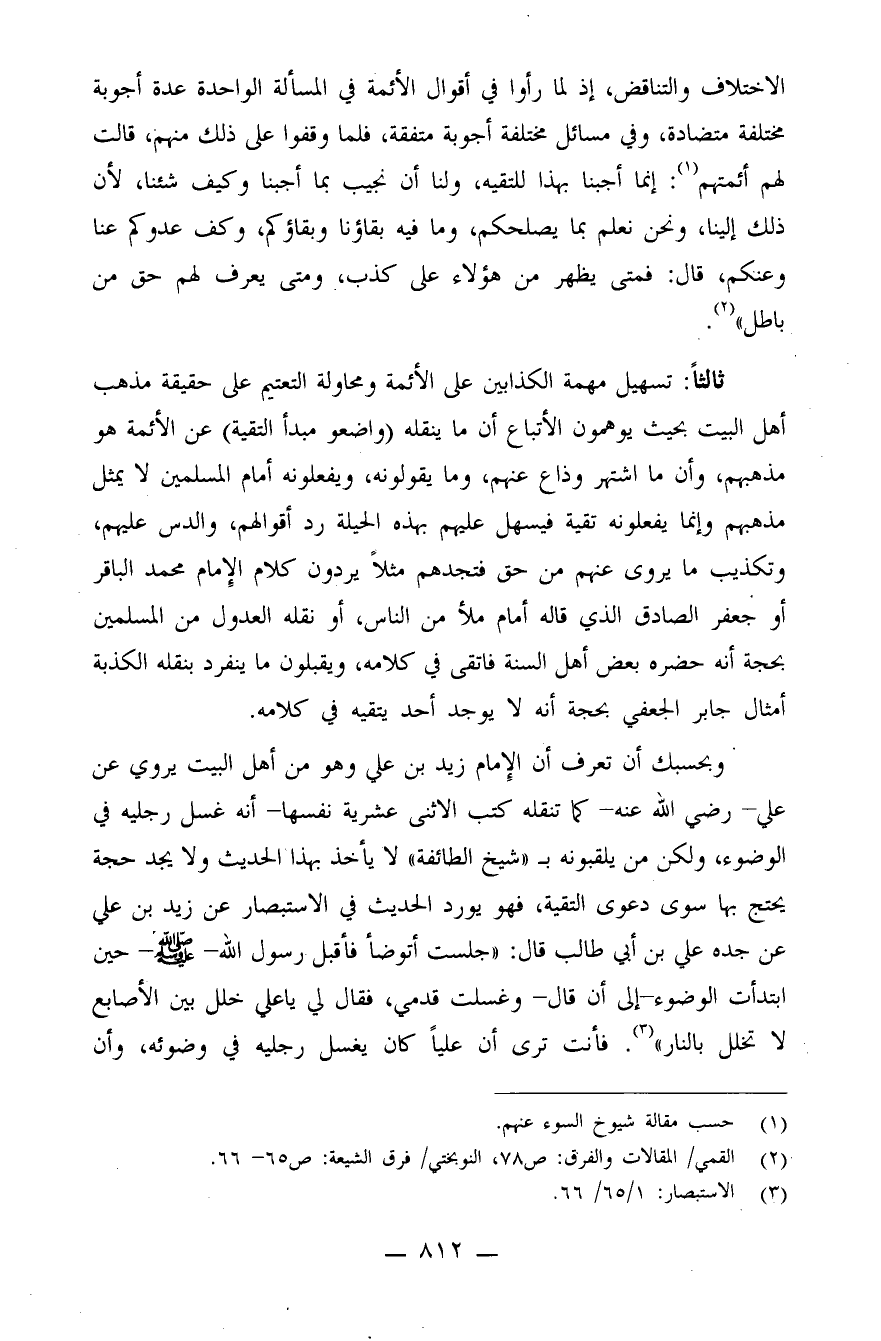 الاختلاف والتناقض، إذ لما رأوا في أقوال الأئمة في المسألة الواحدة عدة أجوبة
مختلفة متضادة، وفي مسائل مختلفة أجوبة متفقة، فلما وقفوا على ذلك منهم، قالت
لهم أئمتهم(١): إنما أجبنا بهذا للتقيه، ولنا أن نجيب بما أجبنا وكيف شئنا، لأن
ذلك إلينا، ونحن نعلم بما يصلحكم، وما فيه بقاؤنا وبقاؤكم، وكف عدوكم عنا
وعنكم، قال: فمتى يظهر من هؤلاء على كذب، ومتى يعرف لهم حق من
باطل»(٢).
ثالثاً: تسهيل مهمة الكذابين على الأئمة ومحاولة التعتيم على حقيقة مذهب
أهل البيت بحيث يوهمون الأتباع أن ما ينقله (واضعو مبدأ التقية) عن الأئمة هو
مذهبهم، وأن ما اشتهر وذاع عنهم، وما يقولونه، ويفعلونه أمام المسلمين لا يمثل
مذهبهم وإنما يفعلونه تقية فيسهل عليهم بهذه الحيلة رد أقوالهم، والدس عليهم،
وتكذيب ما يروى عنهم من حق فتجدهم مثلاً يردون كلام الإمام محمد الباقر
أو جعفر الصادق الذي قاله أمام ملأ من الناس، أو نقله العدول من المسلمين
بحجة أنه حضره بعض أهل السنة فاتقى في كلامه، ويقبلون ما ينفرد بنقله الكذبة
أمثال جابر الجعفي بحجة أنه لا يوجد أحد يتقيه في كلامه.
وبحسبك أن تعرف أن الإمام زيد بن علي وهو من أهل البيت يروي عن
علي– رضي الله عنه– كما تنقله كتب الاثنى عشرية نفسها– أنه غسل رجليه في
الوضوء، ولكن من يلقبونه بـ «شيخ الطائفة» لا يأخذ بهذا الحديث ولا يجد حجة
يحتج بها سوى دعوى التقية، فهو يورد الحديث في الاستبصار عن زيد بن علي
عن جده علي بن أبي طالب قال: «جلست أتوضأ فأقبل رسول الله– ﷺ– حين
ابتدأت الوضوء–إلى أن قال– وغسلت قدمي، فقال لي ياعلي خلل بين الأصابع
لا تخلل بالنار»(٣). فأنت ترى أن علياً كان يغسل رجليه في وضوئه، وأن
(١) حسب مقالة شيوخ السوء عنهم.
(٢) القمي/ المقالات والفرق: ص٧٨، النوبختي/ فرق الشيعة: ص٦٥– ٦٦.
(٣) الاستبصار: ٦٥/١/ ٦٦.
— ٨١٢ —